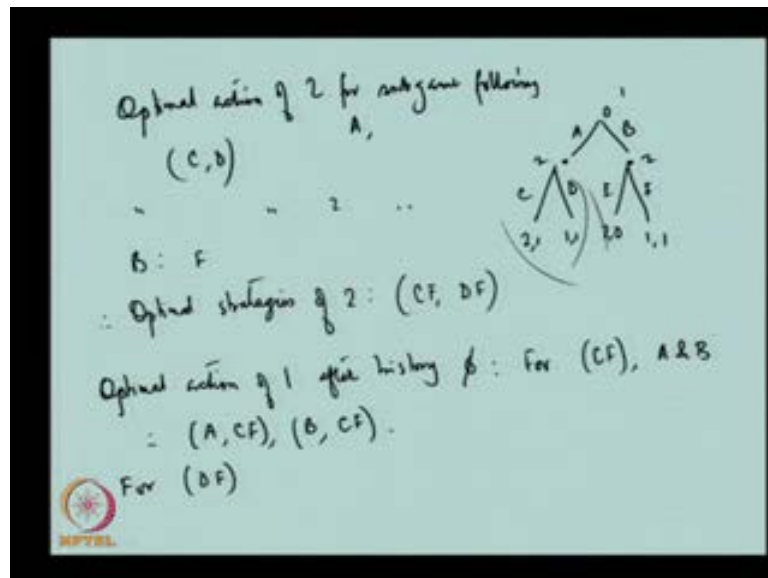 Optimal action of 2 for subgame following
A,
(C,D)
" " 2 "
B : F
∴ Optimal strategies of 2 : (CF, DF)
Optimal action of 1 after history ϕ : For (CF), A & B
∴ (A, CF), (B, CF).
For (DF)
1
A B
2 2
C D E F
1,1 2,0 1,1
NPTEL